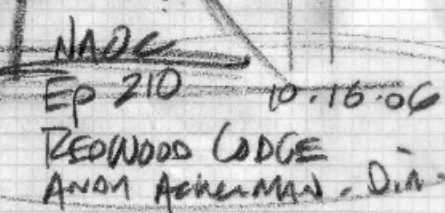 NAOC
Ep 210 10.16.06
REDWOOD LODGE
ANDY ACKERMAN - Dir.